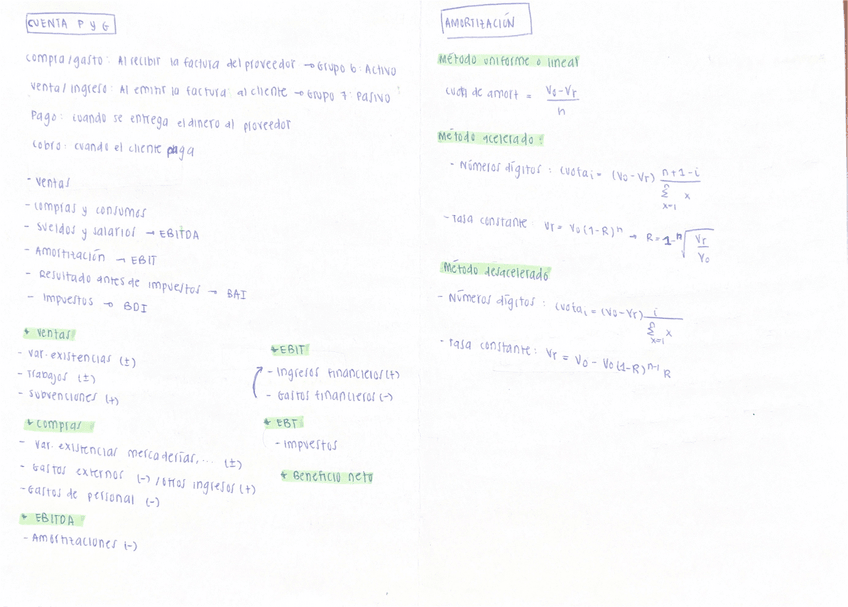 CUENTA P y G
compra/gasto: Al recibir la factura del proveedor → Grupo 6: Activo
venta/ingreso: Al emitir la factura al cliente → Grupo 7: Pasivo
Pago: cuando se entrega el dinero al proveedor
Cobro: cuando el cliente paga
- Ventas
- Compras y consumos
- Sueldos y salarios → EBITDA
- Amortización → EBIT
- Resultado antes de impuestos → BAI
- Impuestos → BDI
* Ventas
- Var. existencias (±)
- Trabajos (±)
- Subvenciones (+)
* Compras
- Var. existencias mercaderías,... (±)
- Gastos externos (-) / otros ingresos (+)
- Gastos de personal (-)
* EBITDA
- Amortizaciones (-)
* EBIT
- Ingresos financieros (+)
- Gastos financieros (-)
* EBT
- Impuestos
* Beneficio neto
AMORTIZACIÓN
Método uniforme o lineal
cuota de amort = (V₀ - Vr) / n
Método acelerado:
- Números dígitos: cuotaᵢ = (V₀ - Vr) (n+1-i) / Σₓ₌₁ⁿ x
- Tasa constante: Vr = V₀ (1-R)ⁿ → R = 1 - ⁿ√(Vr / V₀)
Método desacelerado
- Números dígitos: cuotaᵢ = (V₀ - Vr) i / Σₓ₌₁ⁿ x
- Tasa constante: Vr = V₀ - V₀ (1-R)ⁿ⁻¹ R